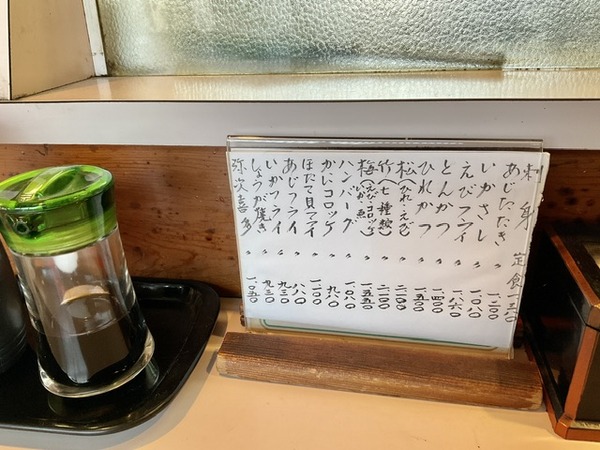 刺身 定食
あじたたき 〃 一二〇〇
いかさし 〃 一〇八〇
えびフライ 〃
とんかつ 〃 一四〇〇
ひれかつ 〃 一五〇〇
松(ひれ・えび) 〃 二一〇〇
竹(七種盛) 〃 二一〇〇
梅(えび・コロッケ いか・魚) 〃 一五五〇
ハンバーグ 〃 一〇八〇
かにコロッケ 〃 九八〇
ほたて貝フライ 〃 一二〇〇
あじフライ 〃 八八〇
いかフライ 〃 九三〇
しょうが焼き 〃 九三〇
弥次喜多 〃 一〇五〇